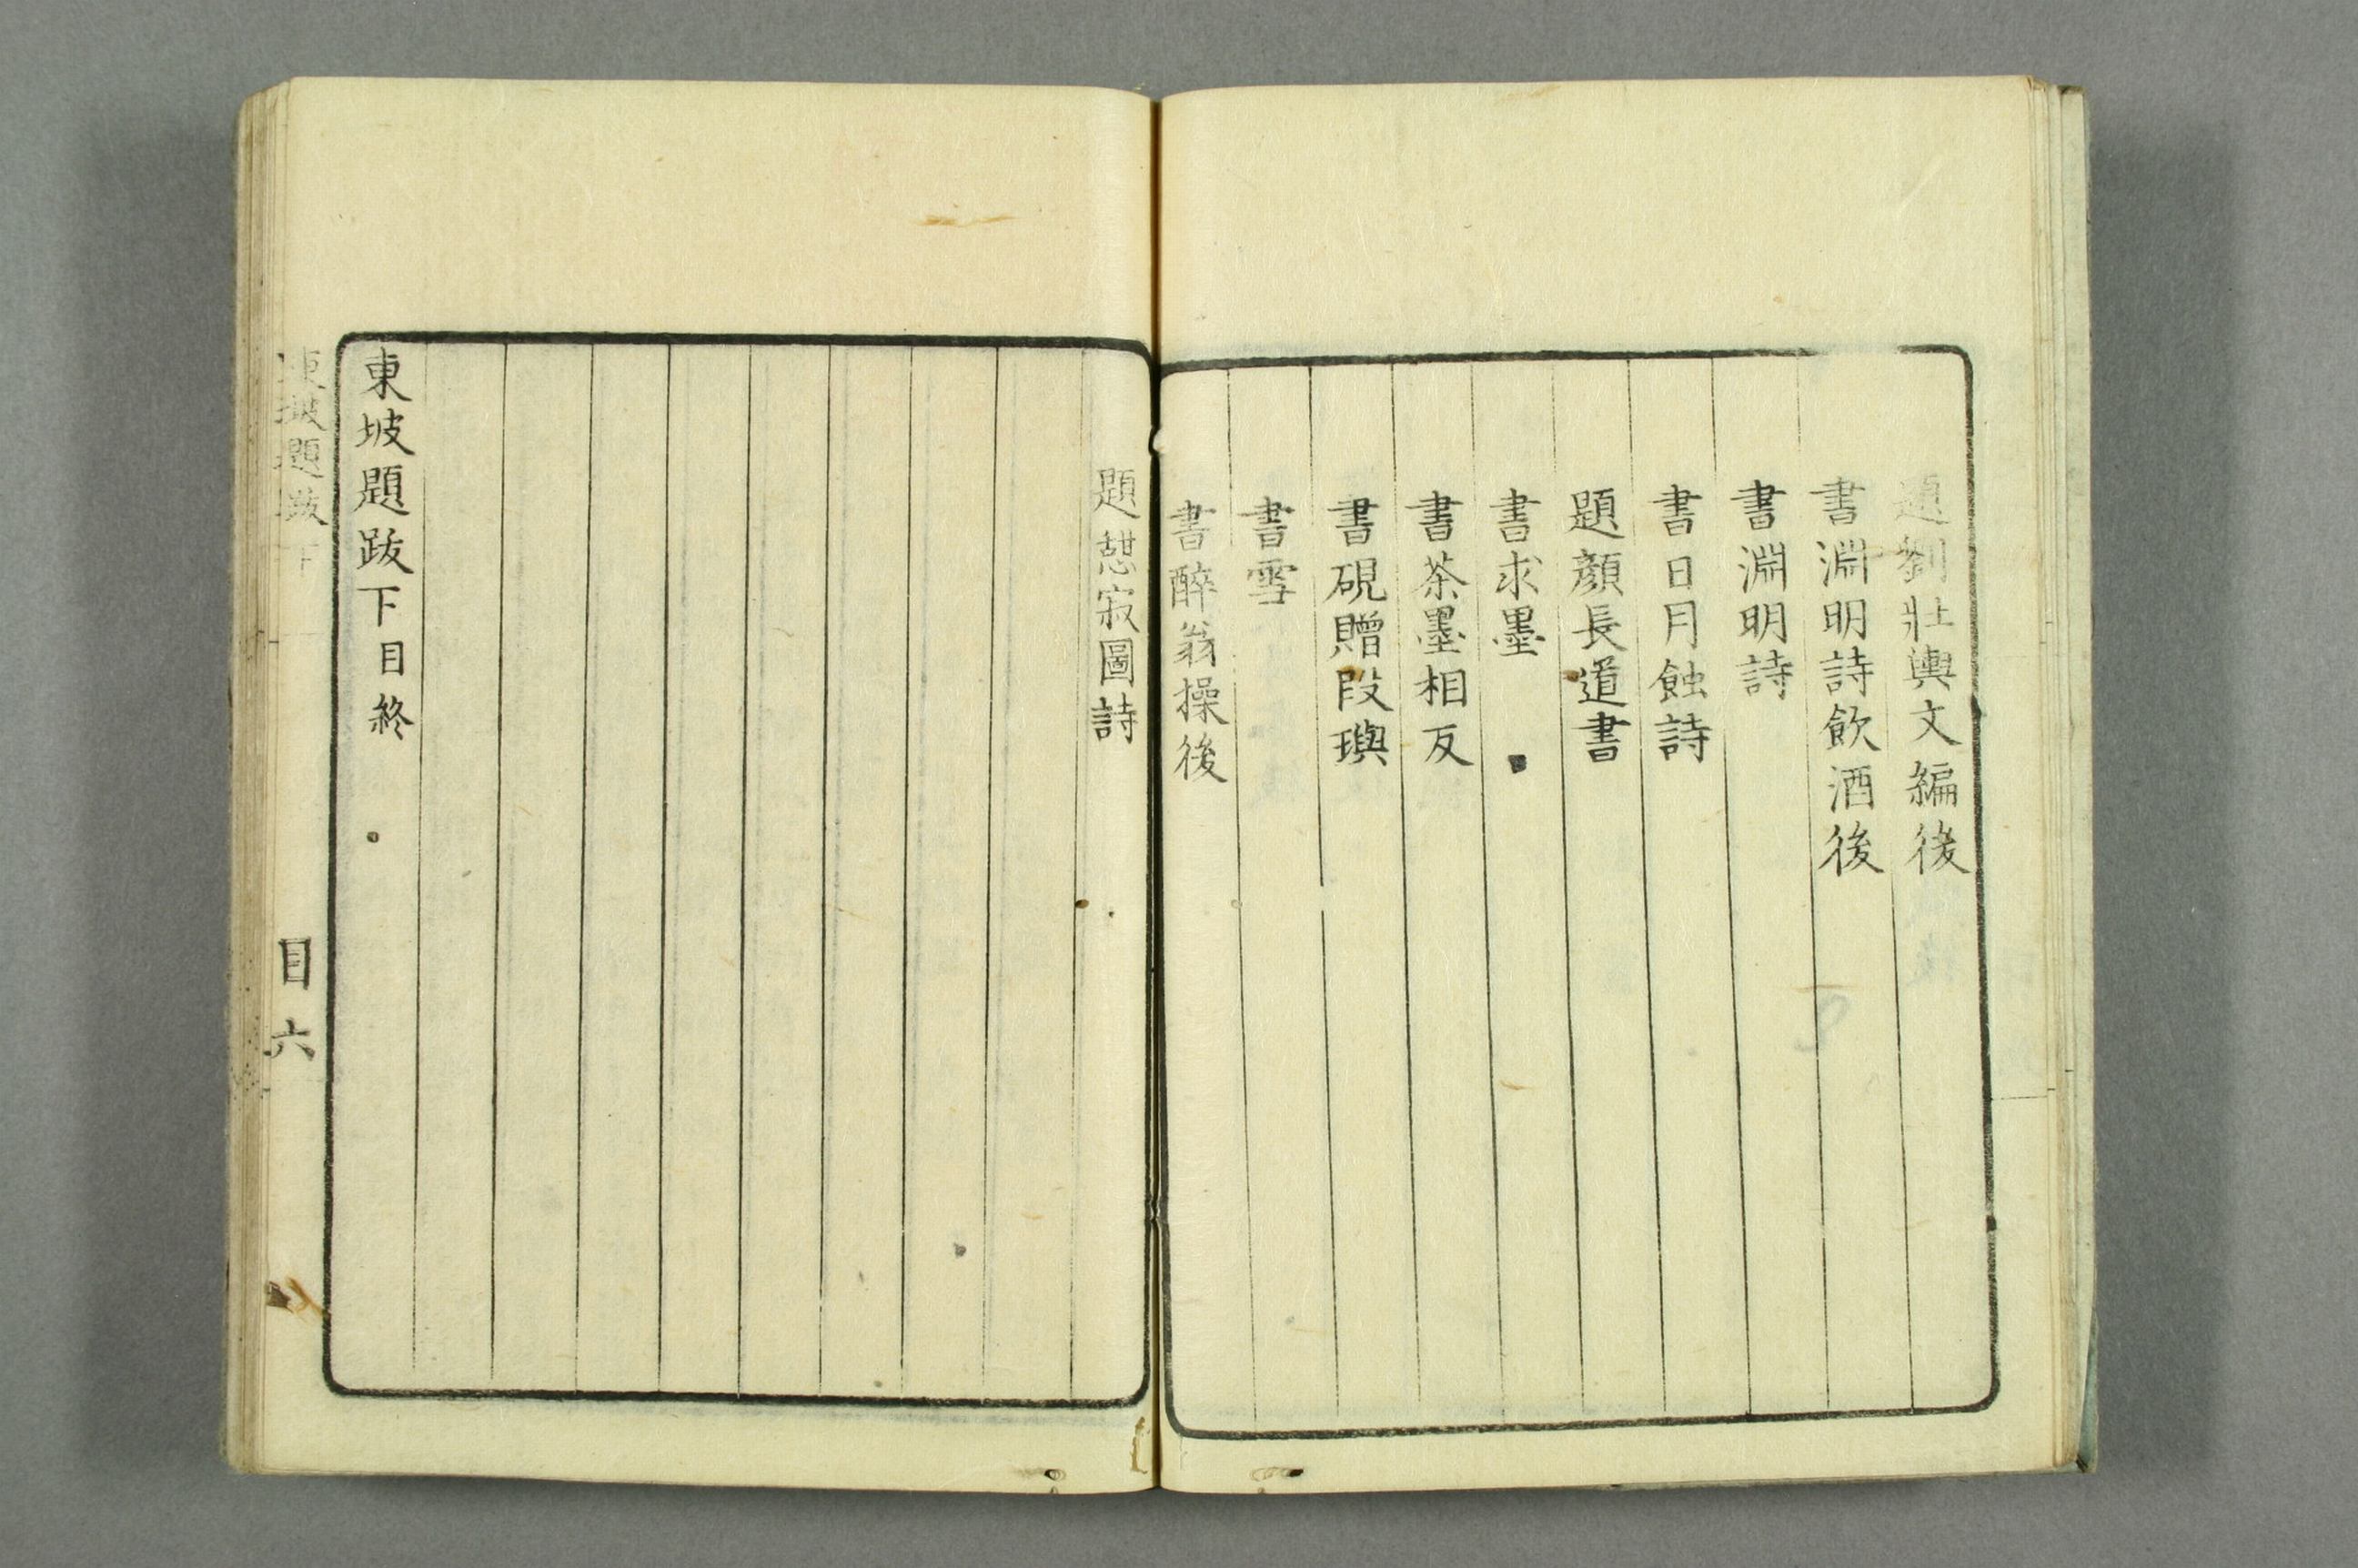 題劉壯輿文編後
書淵明詩飲酒後
書淵明詩
書日月蝕詩
題顏長道書
書求墨
書茶墨相反
書硯贈段璵
書雪
書醉翁操後
題憇寂圖詩
東坡題跋下目終
東坡題跋下
目六